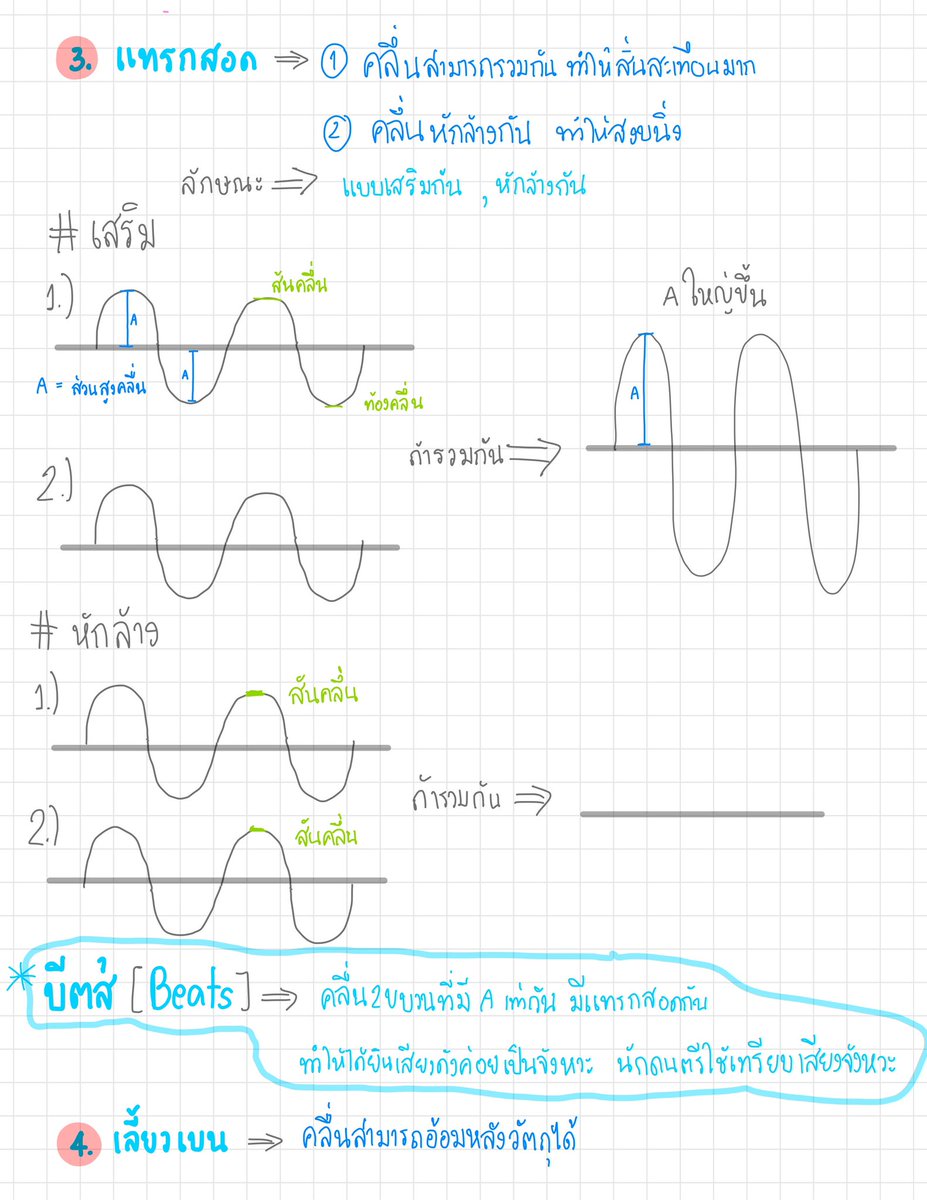 3. แทรกสอด ⇒ ① คลื่นสามารถรวมกัน ทำให้สั่นสะเทือนมาก
② คลื่นหักล้างกัน ทำให้สงบนิ่ง
ลักษณะ ⇒ แบบเสริมกัน , หักล้างกัน
# เสริม
1.)
A
สันคลื่น
A
A = ส่วนสูงคลื่น
ท้องคลื่น
A ใหญ่ขึ้น
A
ถ้ารวมกัน ⇒
2.)
# หักล้าง
1.)
สันคลื่น
ถ้ารวมกัน ⇒
2.)
สันคลื่น
* บีตส์ [Beats] ⇒ คลื่น 2 ขบวนที่มี A เท่ากัน มีแทรกสอดกัน
ทำให้ได้ยินเสียงดังค่อยเป็นจังหวะ นักดนตรีใช้เทรียบเสียงจังหวะ
4. เลี้ยวเบน ⇒ คลื่นสามารถอ้อมหลังวัตถุได้